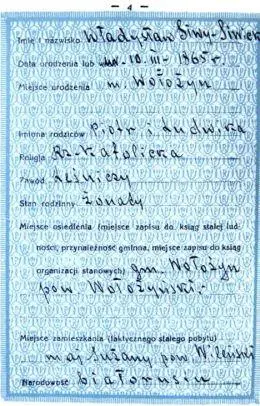 — 4 —
Imię i nazwisko Władysław Siwy-Siwicki
Data urodzenia lub ur. 10. III - 1865 r.
Miejsce urodzenia m. Wołożyn
Imiona rodziców Piotr i Ludwika
Religja Rz-Katolicka
Zawód Leśniczy
Stan rodzinny Żonaty
Miejsce osiedlenia (miejsce zapisu do ksiąg stałej lud-
ności, przynależność gminna, miejsce zapisu do ksiąg
organizacji stanowych) gm. Wołożyn
pow Wołożyński.
Miejsce zamieszkania (faktycznego stałego pobytu)
maj Suzany pow Wileński
Narodowość Białorusin